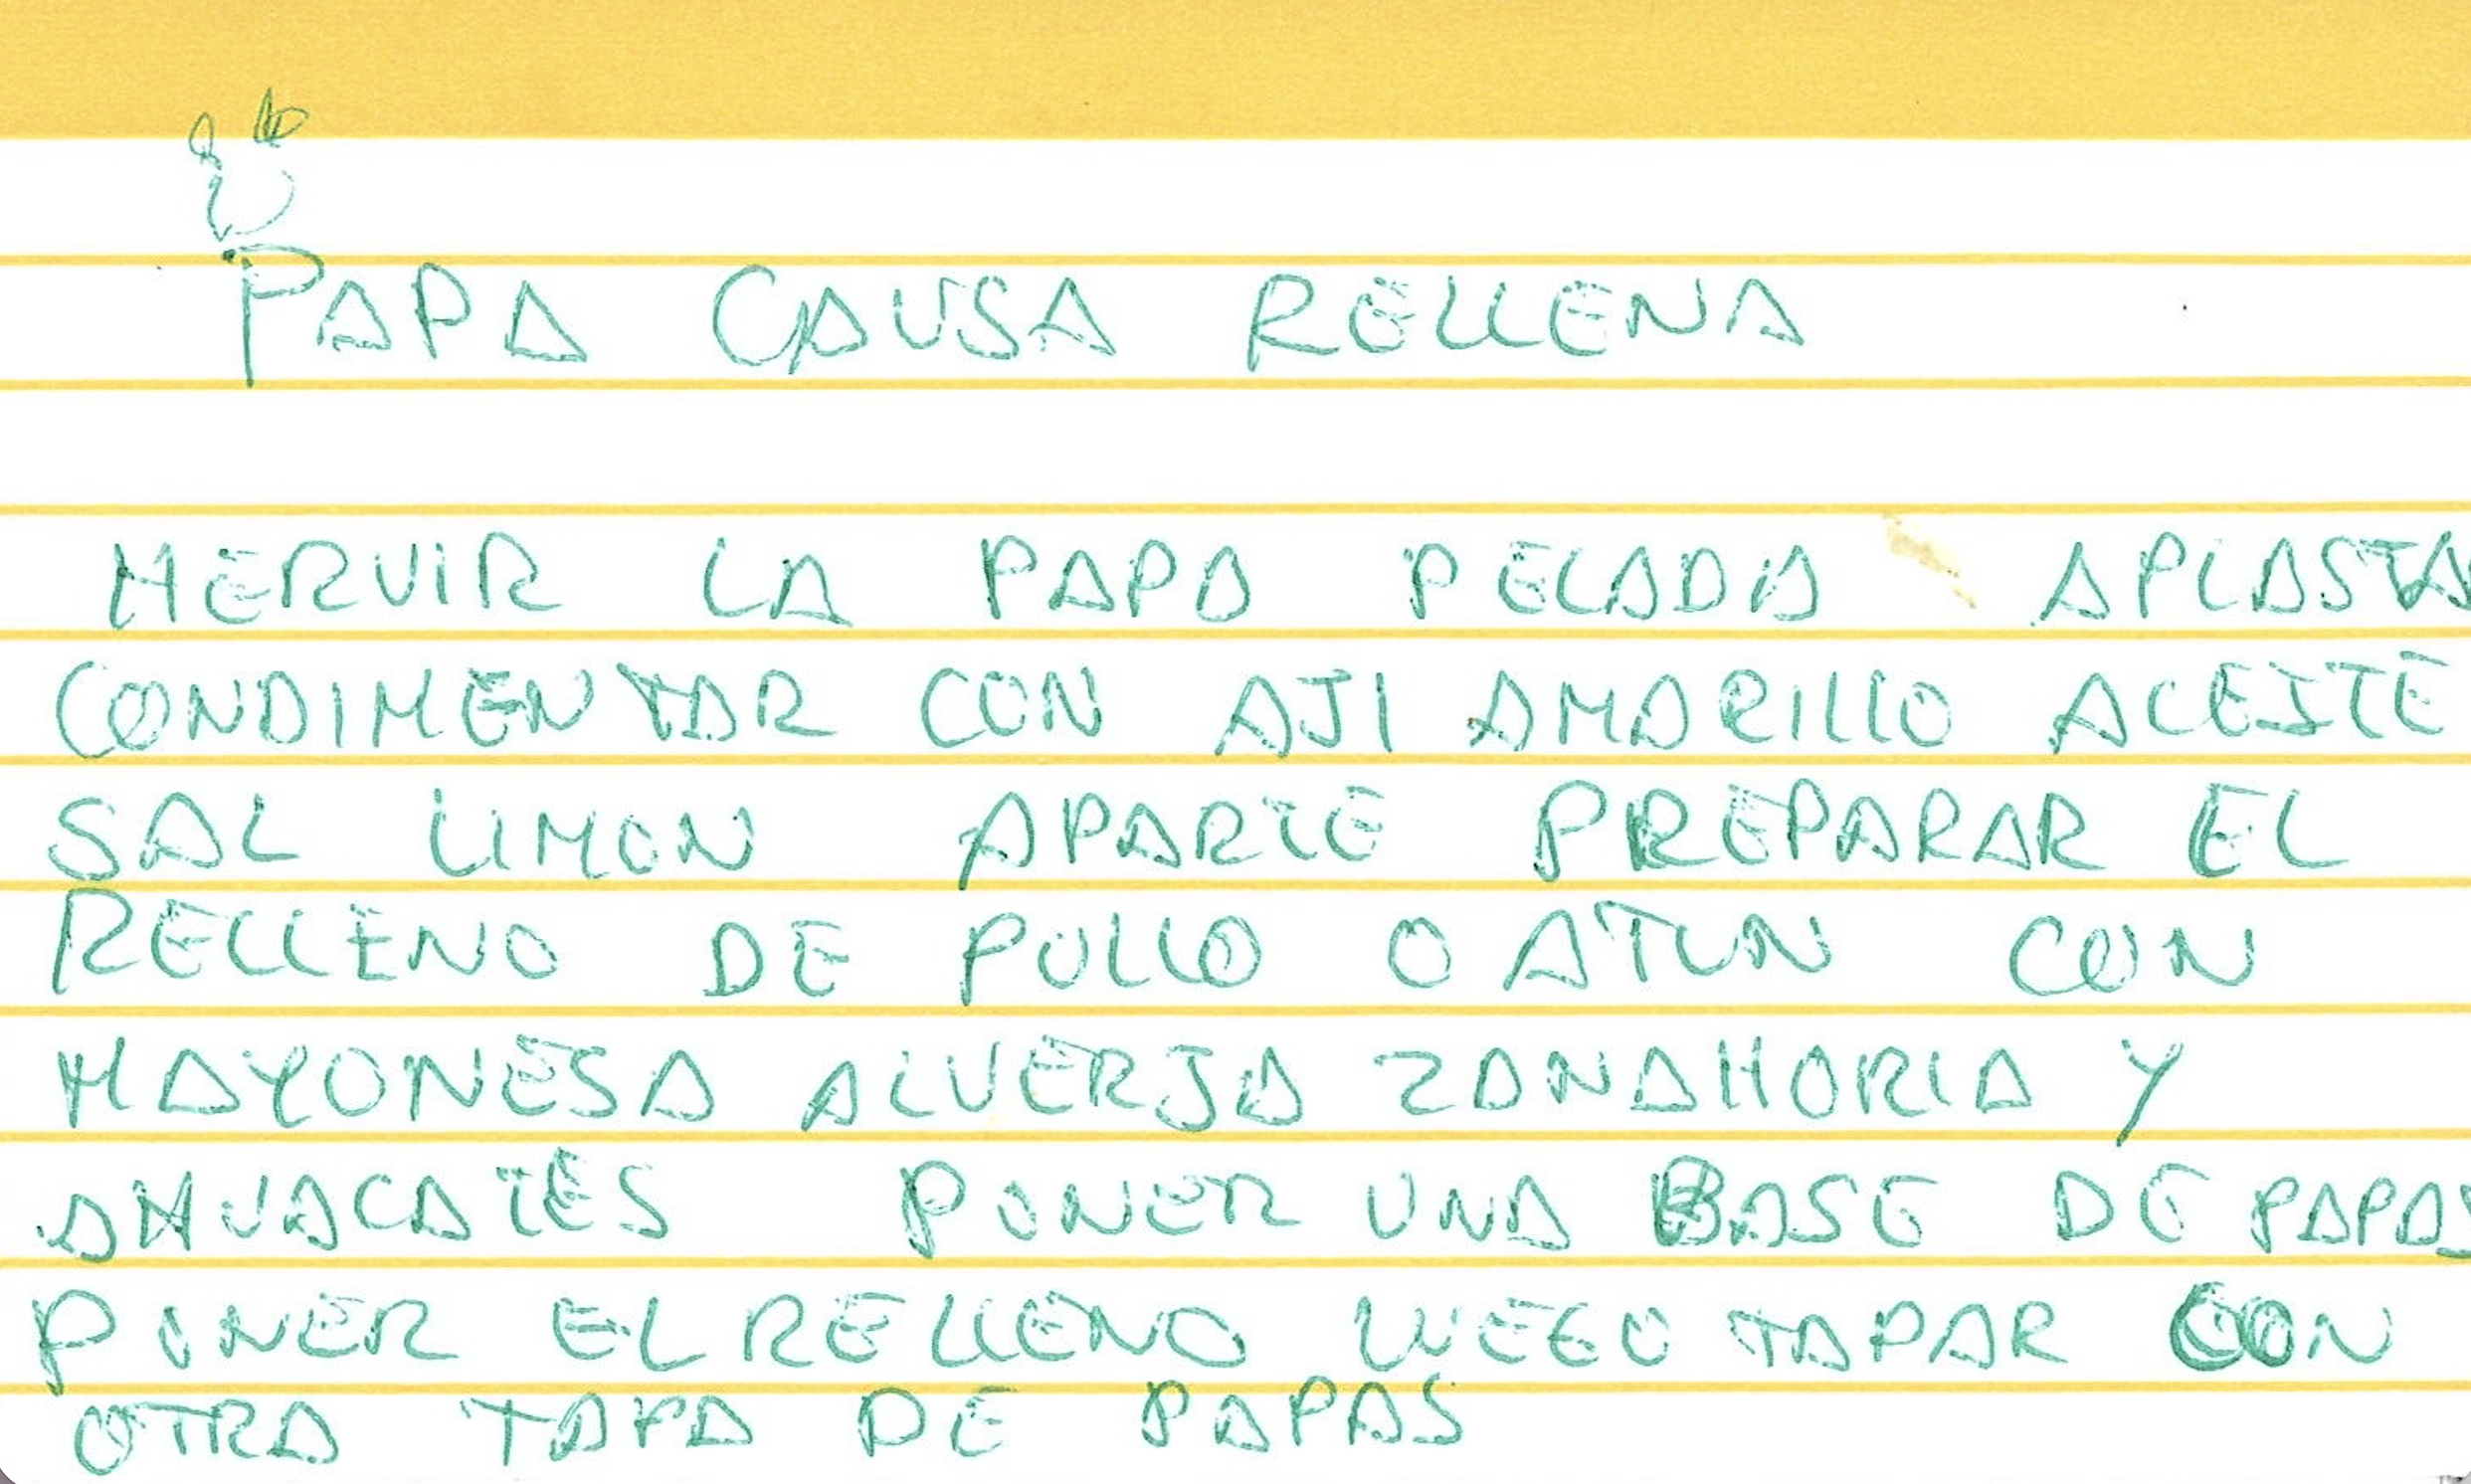 PAPA CAUSA RELLENA
HERVIR LA PAPA PELADA APLASTA
CONDIMENTAR CON AJI AMARILLO ACEITE
SAL LIMON APARTE PREPARAR EL
RELLENO DE POLLO O ATUN CON
MAYONESA ALVERJA ZANAHORIA Y
AHUACATES PONER UNA BASE DE PAPAS
PONER EL RELLENO LUEGO TAPAR CON
OTRA TAPA DE PAPAS